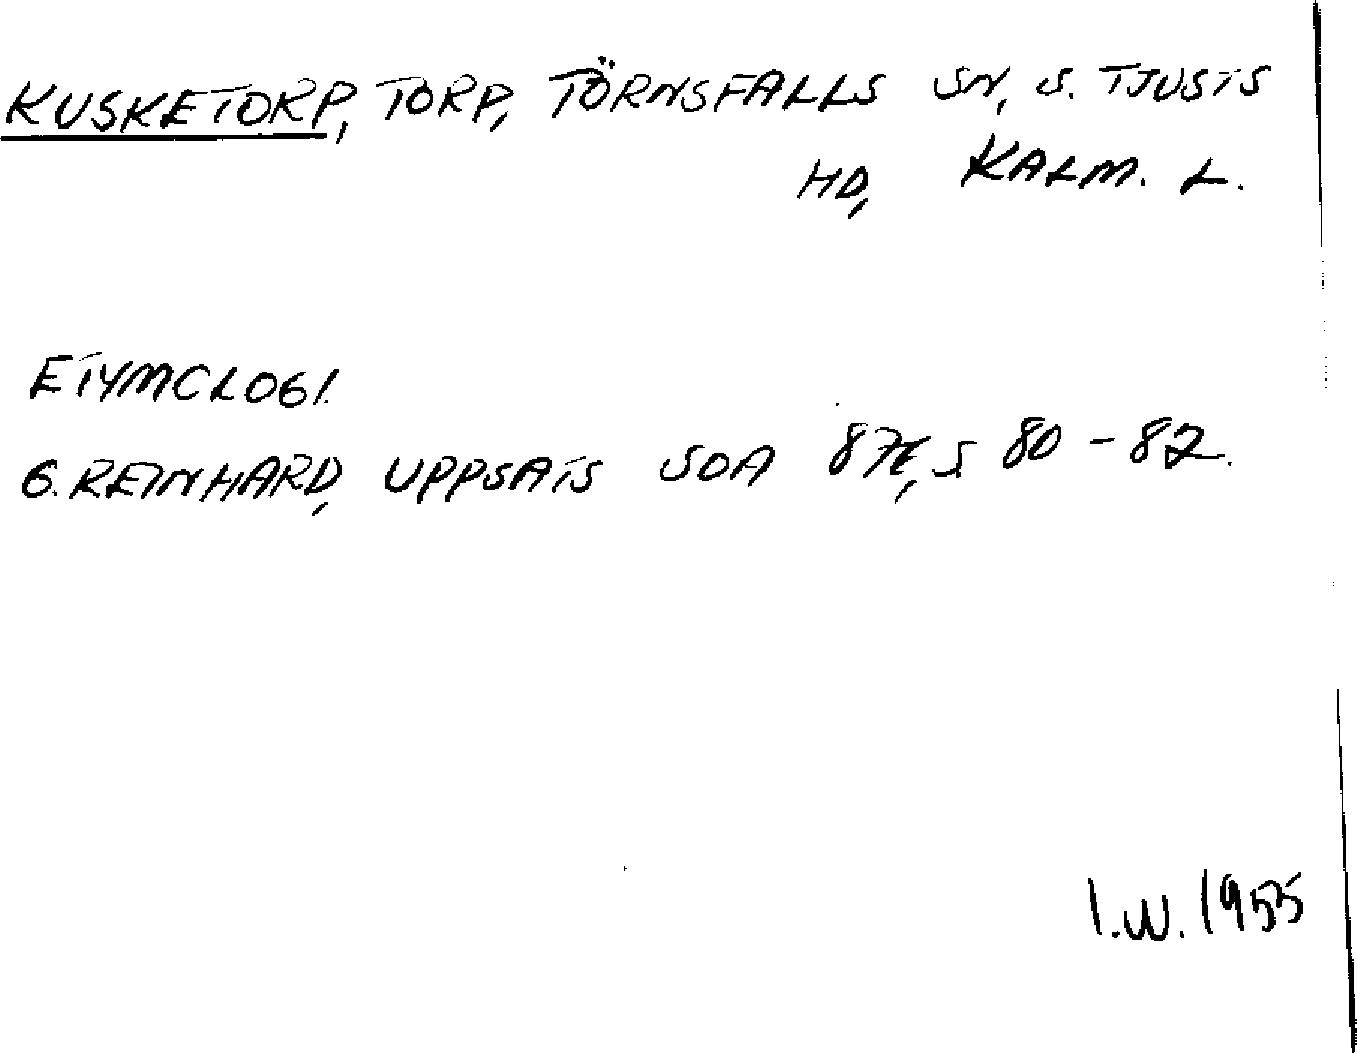 KUSKETORP, TORP, TÖRNSFALLS SN, S. TJUSTS
HD, KALM. L.
ETYMOLOGI.
G. REINHARD, UPPSATS SOA S 80-82.
I.W. 1955